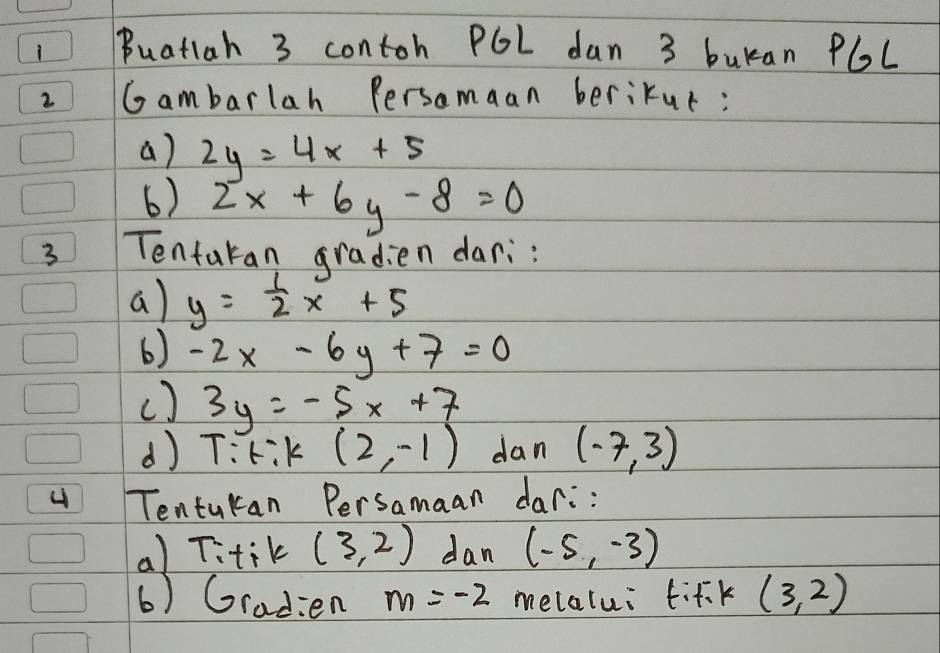 1 Buatlah 3 contoh PGL dan 3 bukan PGL
2 Gambarlah Persamaan berikut :
a) 2y = 4x + 5
b) 2x + 6y - 8 = 0
3 Tentukan gradien dari :
a) y = 1/2 x + 5
b) -2x - 6y + 7 = 0
c) 3y = -5x + 7
d) Titik (2,-1) dan (-7,3)
4 Tentukan Persamaan dari :
a) Titik (3,2) dan (-5,-3)
b) Gradien m = -2 melalui titik (3,2)